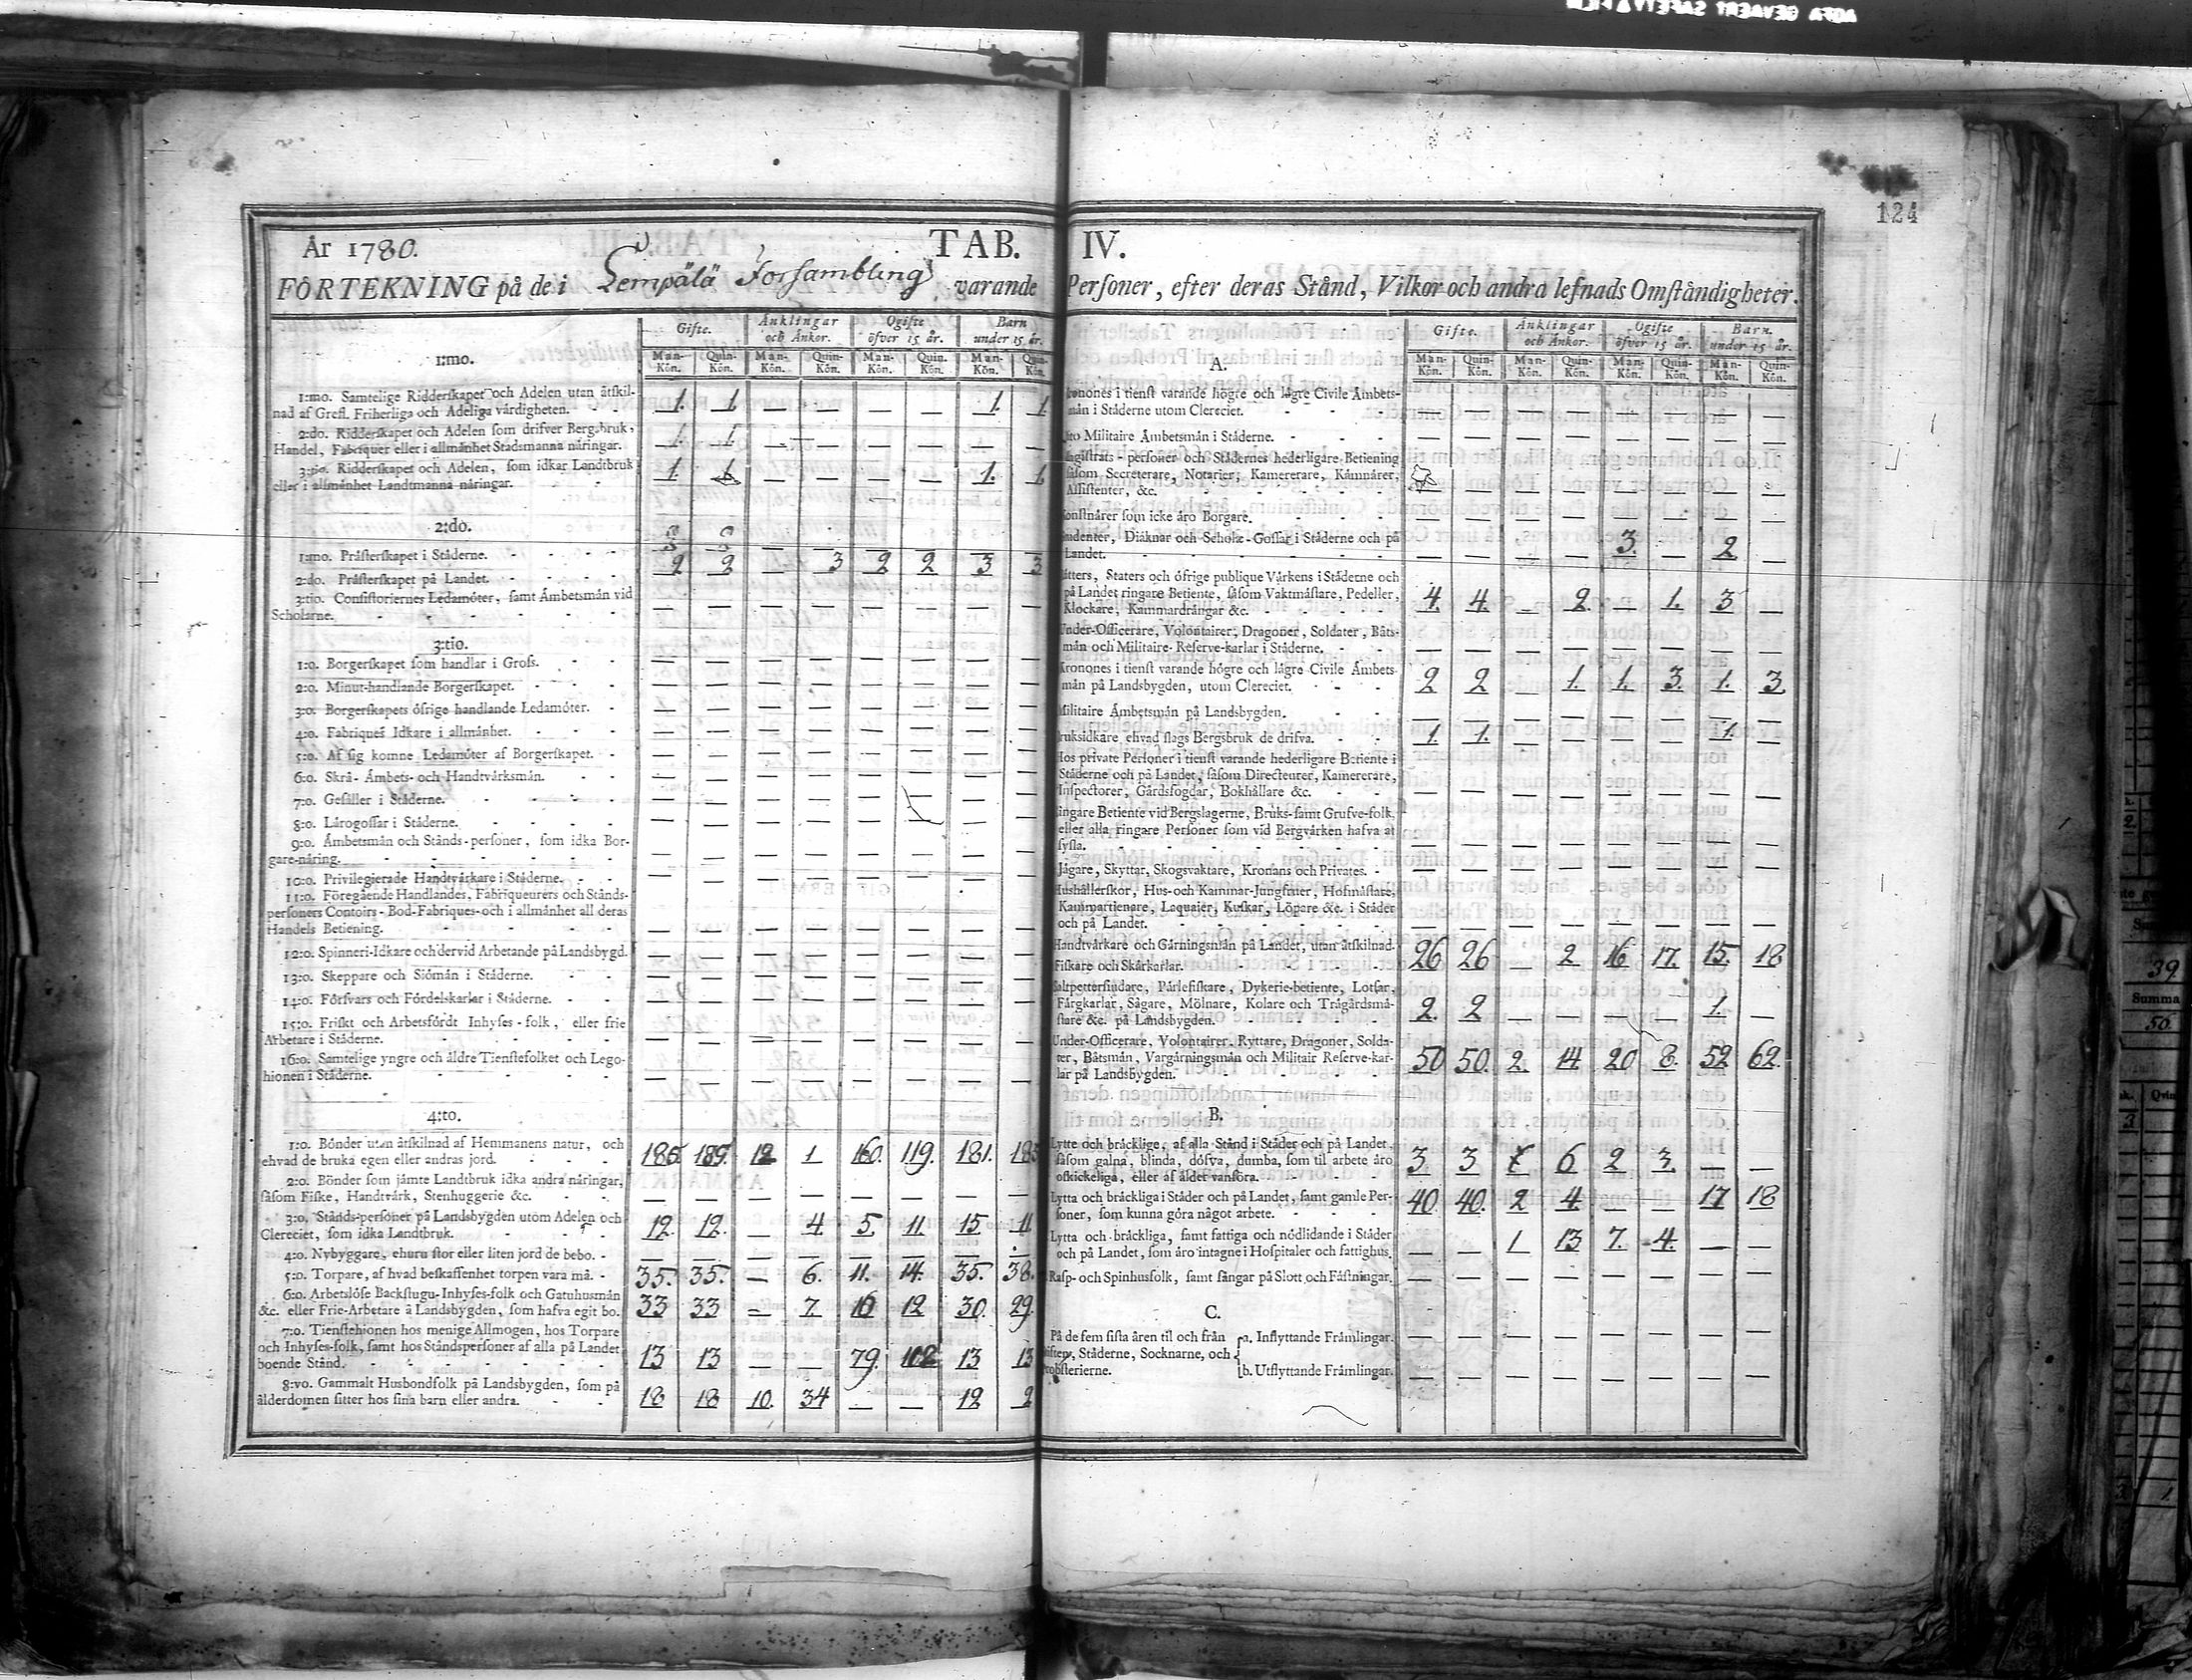 124
År 1780. TAB. IV.
FÖRTEKNING på de i Lempälä Forsambling varande Personer, efter deras Stånd, Vilkor och andra lefnads Omständigheter.
Gifte. Änklingar och Änkor. Ogifte öfver 15 år. Barn under 15 år.
Man-Kön. Quin-Kön. Man-Kön. Quin-Kön. Man-Kön. Quin-Kön. Man-Kön. Quin-Kön.
1:mo.
1:mo. Samtelige Ridderskapet och Adelen utan åtskil-
nad af Grefl. Friherliga och Adeliga värdigheten. 1. 1. — — — — 1. 1
2:do. Ridderskapet och Adelen som drifver Bergsbruk,
Handel, Fabriquer eller i allmänhet Stadsmanna näringar. 1. 1. — — — — — —
3:tio. Ridderskapet och Adelen, som idkar Landtbruk
eller i allmänhet Landtmanna näringar. 1. 1. — — — — 1. 1
2:do.
1:mo. Prästerskapet i Städerne.
2:do. Prästerskapet på Landet. 2 2 — 3 2 2 3 3
3:tio. Consistoriernes Ledamöter, samt Ämbetsmän vid
Scholarne. — — — — — — — —
3:tio.
1:o. Borgerskapet som handlar i Gross. — — — — — — — —
2:o. Minut-handlande Borgerskapet. — — — — — — — —
3:o. Borgerskapets öfrige handlande Ledamöter. — — — — — — — —
4:o. Fabriques Idkare i allmänhet. — — — — — — — —
5:o. Af sig komne Ledamöter af Borgerskapet. — — — — — — — —
6:o. Skrå- Ämbets- och Handtvärksmän. — — — — — — — —
7:o. Gesäller i Städerne. — — — — — — — —
8:o. Lärogossar i Städerne. — — — — — — — —
9:o. Ämbetsmän och Stånds-personer, som idka Bor-
gare-näring. — — — — — — — —
10:o. Privilegierade Handtvärkare i Städerne. — — — — — — — —
11:o. Föregående Handlandes, Fabriqueurers och Stånds-
personers Contoirs- Bod-Fabriques- och i allmänhet all deras
Handels Betiening. — — — — — — — —
12:o. Spinneri-Idkare och dervid Arbetande på Landsbygd. — — — — — — — —
13:o. Skeppare och Siömän i Städerne. — — — — — — — —
14:o. Försvars och Fördelskarlar i Städerne. — — — — — — — —
15:o. Friskt och Arbetsfördt Inhyses-folk, eller frie
Arbetare i Städerne. — — — — — — — —
16:o. Samtelige yngre och äldre Tienstefolket och Lego-
hionen i Städerne. — — — — — — — —
4:to.
1:o. Bönder utan åtskilnad af Hemmanens natur, och
ehvad de bruka egen eller andras jord. 186 189. 12 1 160. 119. 181.
2:o. Bönder som jämte Landtbruk idka andra näringar,
såsom Fiske, Handtvärk, Stenhuggerie &c. — — — — — — — —
3:o. Stånds-personer på Landsbygden utom Adelen och
Clereciet, som idka Landtbruk. 12. 12. — 4. 5. 11. 15. 11
4:o. Nybyggare, ehuru stor eller liten jord de bebo. — — — — — — — —
5:o. Torpare, af hvad beskaffenhet torpen vara må. 35. 35. — 6. 11. 14. 35. 38.
6:o. Arbetslöse Backstugu-Inhyses-folk och Gatuhusmän
&c. eller Frie-Arbetare å Landsbygden, som hafva egit bo. 33 33 — 7. 16 12 30. 29
7:o. Tienstehionen hos menige Allmogen, hos Torpare
och Inhyses-folk, samt hos Ståndspersoner af alla på Landet
boende Stånd. 13 13 — — 79. 108 13 13
8:vo. Gammalt Husbondfolk på Landsbygden, som på
ålderdomen sitter hos sina barn eller andra. 18 18 10. 34 — — 12 2
Gifte. Änklingar och Änkor. Ogifte öfver 15 år. Barn. under 15 år.
Man-Kön. Quin-Kön. Man-Kön. Quin-Kön. Man-Kön. Quin-Kön. Man-Kön. Quin-Kön.
A.
Kronones i tienst varande högre och lägre Civile Ämbets-
män i Städerne utom Clereciet. — — — — — — — —
Dito Militaire Ämbetsmän i Städerne. — — — — — — — —
Magistrats-personer och Städernes hederligare Betiening
såsom Secreterare, Notarier, Kamererare, Kämnärer,
Assistenter, &c. — — — — — — — —
Konstnärer som icke äro Borgare. — — — — — — — —
Studenter, Diäknar och Schole-Gossar i Städerne och på
Landet. — — — — 3. — 2 —
Rätters, Staters och öfrige publique Värkens i Städerne och
på Landet ringare Betiente, såsom Vaktmästare, Pedeller,
Klockare, Kammardrängar &c. 4. 4. — 2. — 1. 3 —
Under-Officerare, Volontairer, Dragoner, Soldater, Båts-
män och Militaire-Reserve-karlar i Städerne. — — — — — — — —
Kronones i tienst varande högre och lägre Civile Ämbets-
män på Landsbygden, utom Clereciet. 2 2 — 1. 1. 3. 1. 3.
Militaire Ämbetsmän på Landsbygden. — — — — — — — —
Bruksidkare ehvad slags Bergsbruk de drifva. 1. 1. — — — — 1. —
Hos private Personer i tienst varande hederligare Betiente i
Städerne och på Landet, såsom Directeurer, Kamererare,
Inspectorer, Gårdsfogdar, Bokhållare &c. — — — — — — — —
Ringare Betiente vid Bergslagerne, Bruks-samt Grufve-folk,
eller alla ringare Personer som vid Bergvärken hafva at
sysla. — — — — — — — —
Jägare, Skyttar, Skogsvaktare, Kronans och Privates. — — — — — — — —
Hushållerskor, Hus- och Kammar-Jungfruer, Hofmästare,
Kammartienare, Laquaier, Kuskar, Löpare &c. i Städer
och på Landet. — — — — — — — —
Handtvärkare och Gärningsmän på Landet, utan åtskilnad. 26 26 — 2 16 17. 15. 18
Fiskare och Skärkarlar.
Saltpettersiudare, Pärlefiskare, Dykerie-betiente, Lotsar,
Färgkarlar, Sågare, Mölnare, Kolare och Trägårdsmä-
stare &c. på Landsbygden. 2. 2 — — — — 1. —
Under-Officerare, Volontairer, Ryttare, Dragoner, Solda-
ter, Båtsmän, Vargärningsmän och Militair Reserve-kar-
lar på Landsbygden. 50 50. 2. 14 20 8. 52 62.
B.
Lytte och bräcklige, af alla Stånd i Städer och på Landet,
såsom galna, blinda, döfva, dumba, som til arbete äro
oskickeliga, eller af ålder vanföra. 3. 3 6 2 3. — —
Lytta och bräckliga i Städer och på Landet, samt gamle Per-
soner, som kunna göra något arbete. 40 40. 2 4. — — 17 18
Lytta och bräckliga, samt fattiga och nödlidande i Städer
och på Landet, som äro intagne i Hospitaler och fattighus. — — 1 13 7. 4. — —
Rasp- och Spinhusfolk, samt fångar på Slott och Fästningar. — — — — — — — —
C.
På de fem sista åren til och från
Stiften, Städerne, Socknarne, och
Probsterierne.
a. Inflyttande Främlingar. — — — — — — — —
b. Utflyttande Främlingar. — — — — — — — —
39
Summa
56